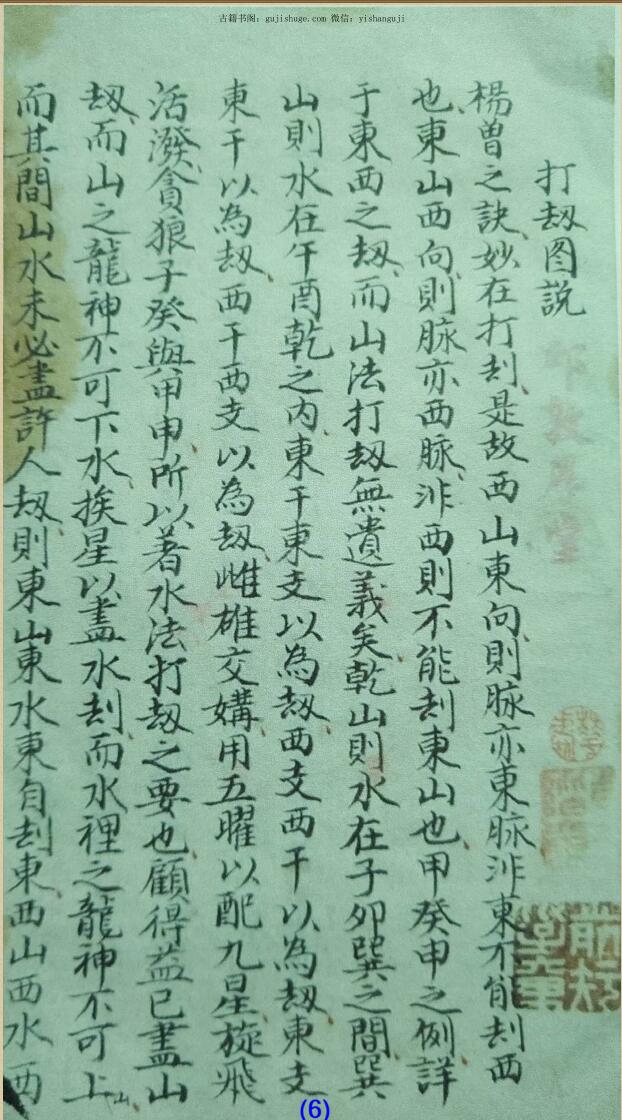 古籍书阁：gujishuge.com 微信：yishanguji
打刼图説
楊曽之訣妙在打刦是故西山東向則脉亦東脉非東不能刦西
也東山西向則脉亦西脉非西則不能刦東山也甲癸申之例詳
于東西之刼而山法打刼無遺義矣乾山則水在子卯巽之間巽
山則水在午酉乾之内東干東支以為刼西支西干以為刼東支
東干以為刼西干西支以為刼雌雄交媾用五曜以配九星旋飛
活潑貪狼子癸與甲申所以著水法打刼之要也顧得益已盡山
刼而山之龍神不可下水挨星以盡水刦而水裡之龍神不可上山
而其間山水未必盡許人刼則東山東水東自刦東西山西水西
(6)